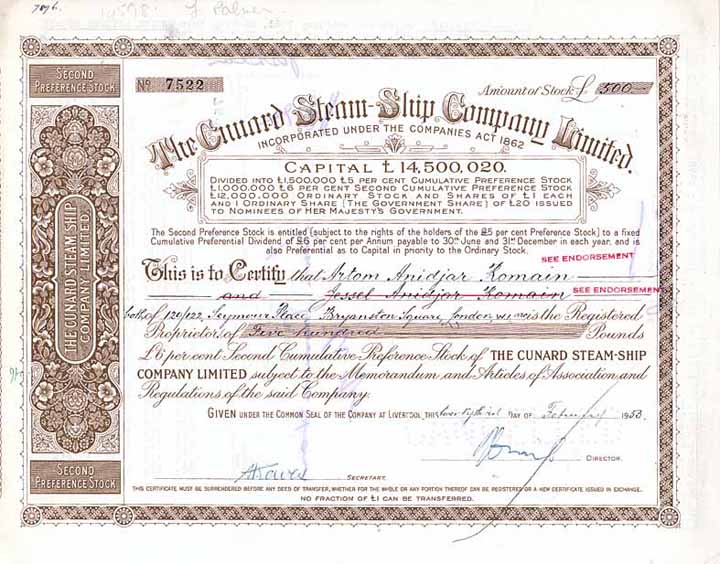 7896.
14598.
SECOND
PREFERENCE STOCK
No 7522
Amount of Stock £ 500
The Cunard Steam-Ship Company Limited.
INCORPORATED UNDER THE COMPANIES ACT 1862
CAPITAL £14,500,020.
DIVIDED INTO £1,500,000 £5 PER CENT CUMULATIVE PREFERENCE STOCK
£1,000,000 £6 PER CENT SECOND CUMULATIVE PREFERENCE STOCK
£12,000,000 ORDINARY STOCK AND SHARES OF £1 EACH
AND 1 ORDINARY SHARE (THE GOVERNMENT SHARE) OF £20 ISSUED
TO NOMINEES OF HER MAJESTY'S GOVERNMENT.
The Second Preference Stock is entitled (subject to the rights of the holders of the £5 per cent Preference Stock) to a fixed
Cumulative Preferential Dividend of £6 per cent per Annum payable to 30th June and 31st December in each year, and is
also Preferential as to Capital in priority to the Ordinary Stock.
SEE ENDORSEMENT
This is to Certify that Artom Anidjar Romain
and Jessel Anidjar Romain SEE ENDORSEMENT
both of 120/122, Seymour Place, Bryanston Square, London, W.1. is the Registered
Proprietor of Five hundred Pounds
£6 per cent Second Cumulative Preference Stock of THE CUNARD STEAM-SHIP
COMPANY LIMITED subject to the Memorandum and Articles of Association and
Regulations of the said Company.
GIVEN UNDER THE COMMON SEAL OF THE COMPANY AT LIVERPOOL, THIS DAY OF February 1953.
DIRECTOR.
SECRETARY.
THIS CERTIFICATE MUST BE SURRENDERED BEFORE ANY DEED OF TRANSFER, WHETHER FOR THE WHOLE OR ANY PORTION THEREOF CAN BE REGISTERED OR A NEW CERTIFICATE ISSUED IN EXCHANGE.
NO FRACTION OF £1 CAN BE TRANSFERRED.
THE CUNARD STEAM-SHIP
COMPANY LIMITED.
SECOND
PREFERENCE STOCK